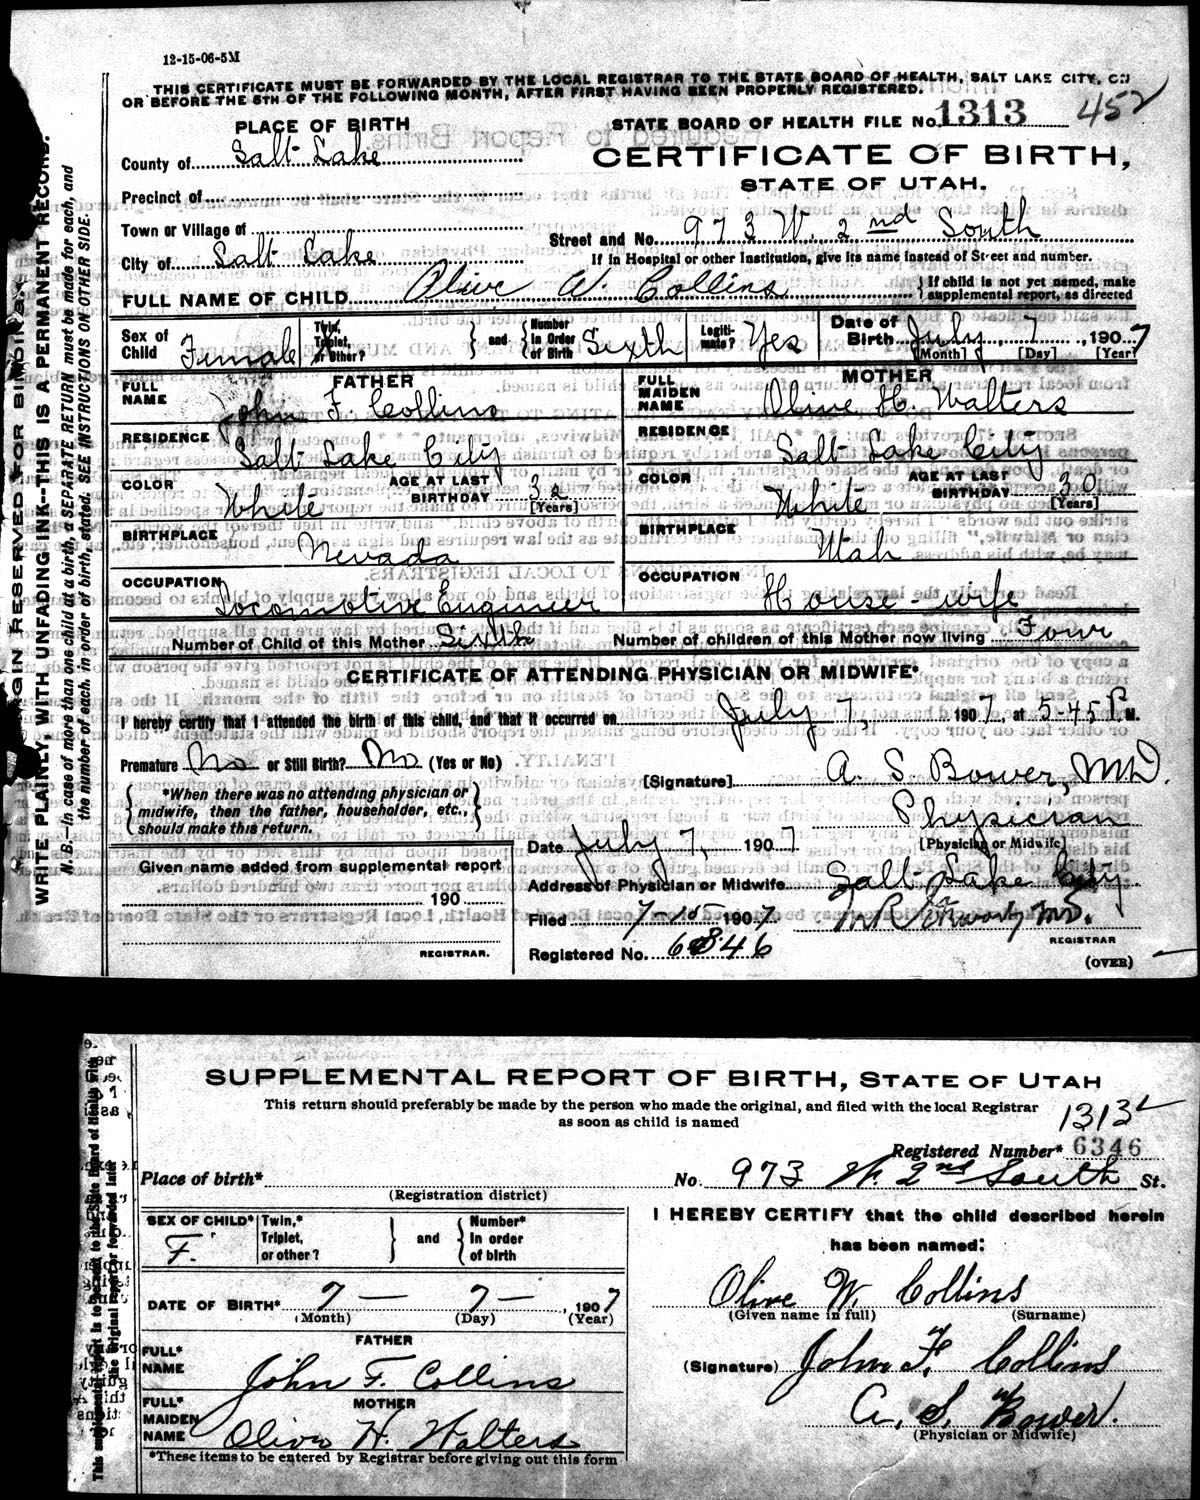 12-15-06-5M
THIS CERTIFICATE MUST BE FORWARDED BY THE LOCAL REGISTRAR TO THE STATE BOARD OF HEALTH, SALT LAKE CITY, ON
OR BEFORE THE 5TH OF THE FOLLOWING MONTH, AFTER FIRST HAVING BEEN PROPERLY REGISTERED.
STATE BOARD OF HEALTH FILE No. 1313 452
PLACE OF BIRTH
County of Salt Lake
CERTIFICATE OF BIRTH,
STATE OF UTAH.
Precinct of
Town or Village of
Street and No. 973 W. 2nd South
City of Salt Lake
If in Hospital or other Institution, give its name instead of Street and number.
FULL NAME OF CHILD Olive W. Collins
If child is not yet named, make supplemental report, as directed
Sex of Child Female Twin, Triplet, or Other? and Number in Order of Birth Sixth Legitimate? Yes Date of Birth July 7, 1907
[Month] [Day] [Year]
FATHER
FULL NAME John F. Collins
RESIDENCE Salt Lake City
COLOR White AGE AT LAST BIRTHDAY 32 [Years]
BIRTHPLACE Nevada
OCCUPATION Locomotive Engineer
MOTHER
FULL MAIDEN NAME Olive H. Walters
RESIDENCE Salt Lake City
COLOR White AGE AT LAST BIRTHDAY 30 [Years]
BIRTHPLACE Utah
OCCUPATION House-wife
Number of Child of this Mother Sixth Number of children of this Mother now living Four
CERTIFICATE OF ATTENDING PHYSICIAN OR MIDWIFE*
I hereby certify that I attended the birth of this child, and that it occurred on July 7, 1907, at 5-45 P. M.
Premature No or Still Birth? No (Yes or No)
[Signature] A. S. Bower, MD.
*When there was no attending physician or
midwife, then the father, householder, etc.,
should make this return.
Physician
[Physician or Midwife]
Date July 7, 1907
Given name added from supplemental report
190
REGISTRAR.
Address of Physician or Midwife Salt Lake City
Filed 7-15 1907
REGISTRAR
Registered No. 6346
(OVER)
MARGIN RESERVED FOR BINDING.
WRITE PLAINLY, WITH UNFADING INK--THIS IS A PERMANENT RECORD.
N. B.—In case of more than one child at a birth, a SEPARATE RETURN must be made for each, and
the number of each, in order of birth, stated. SEE INSTRUCTIONS ON OTHER SIDE.
SUPPLEMENTAL REPORT OF BIRTH, STATE OF UTAH
This return should preferably be made by the person who made the original, and filed with the local Registrar
as soon as child is named
1313
Registered Number* 6346
Place of birth* No. 973 W. 2nd South St.
(Registration district)
SEX OF CHILD* F. Twin,* Triplet, or other? and Number* In order of birth
DATE OF BIRTH* 7 — 7 — , 1907
(Month) (Day) (Year)
FATHER
FULL* NAME John F. Collins
MOTHER
FULL* MAIDEN NAME Olive H. Walters
*These items to be entered by Registrar before giving out this form
I HEREBY CERTIFY that the child described herein
has been named:
Olive W. Collins
(Given name in full) (Surname)
(Signature) John F. Collins
A. S. Bower.
(Physician or Midwife)
This supplemental report is to be sent to the State Board of Health with
the original report or forwarded later